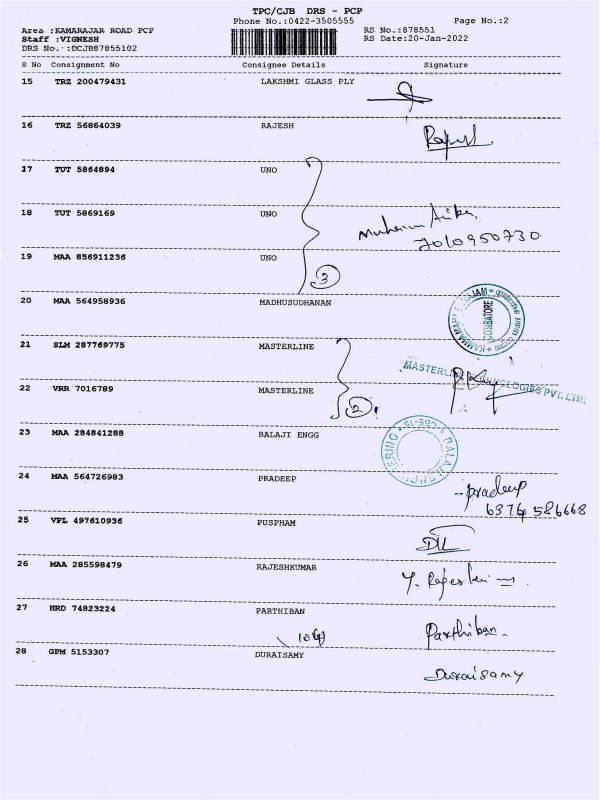 TPC/CJB DRS - PCP
Phone No.:0422-3505555 Page No.:2
Area :KAMARAJAR ROAD PCP RS No.:878551
Staff :VIGNESH RS Date:20-Jan-2022
DRS No.:DCJB87855102
S No Consignment No Consignee Details Signature
15 TRZ 200479431 LAKSHMI GLASS PLY
16 TRZ 56864039 RAJESH
17 TUT 5864894 UNO
18 TUT 5869169 UNO
7010950730
19 MAA 856911236 UNO
3
20 MAA 564958936 MADHUSUDHANAN
COIMBATORE
21 SLM 287769775 MASTERLINE
MASTERLINE TECHNOLOGIES PVT. LTD.
22 VRR 7016789 MASTERLINE
2
23 MAA 284841288 BALAJI ENGG
BALAJI ENGINEERING CBE-15
24 MAA 564726983 PRADEEP
pradeep
6374 586668
25 VPL 497610936 PUSPHAM
26 MAA 285598479 RAJESHKUMAR
27 HRD 74823224 PARTHIBAN
Parthiban.
28 GPM 5153307 DURAISAMY
Duraisamy